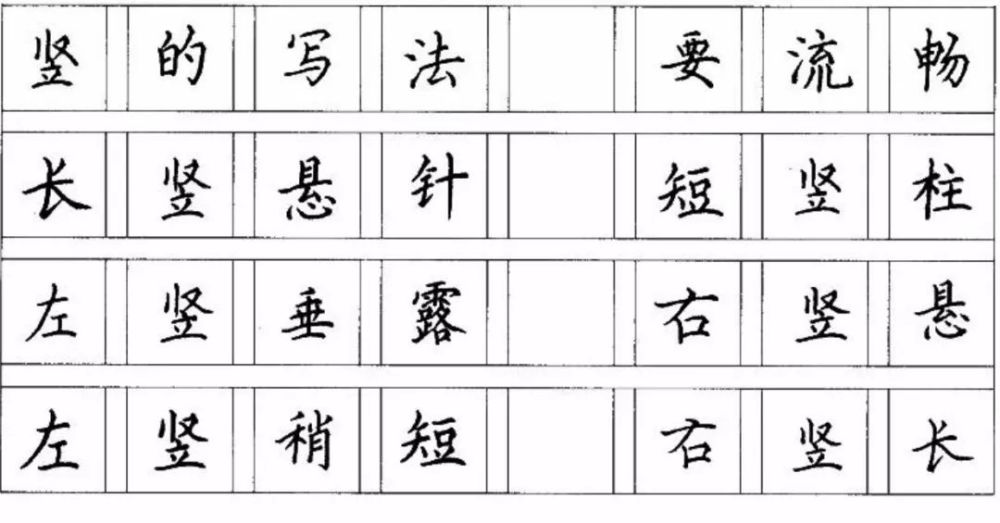 竖的写法 要流畅
长竖悬针 短竖柱
左竖垂露 右竖悬
左竖稍短 右竖长